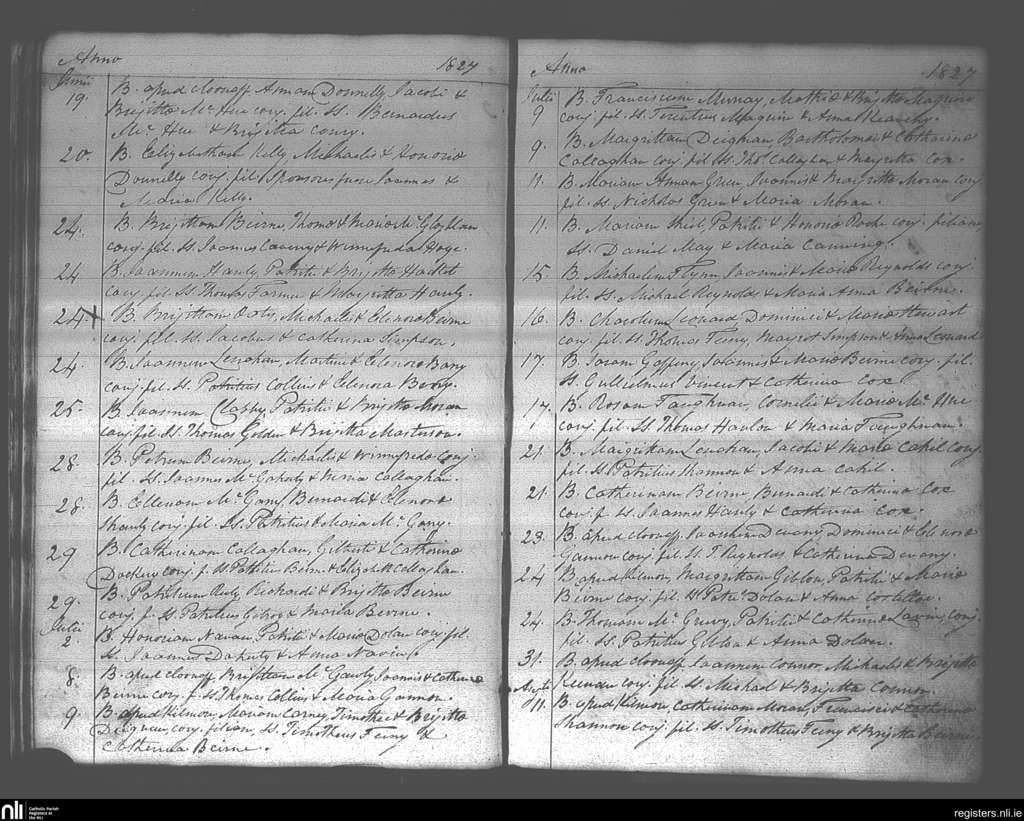 Anno 1827
Junii
19. B. apud Cloonaff Annam Donnelly Jacobi &
Brigitta McHue conj. fil. Ss. Bernardus
McHue & Brigitta conry.
20. B. Elizabetham Kelly Michaelis & Honoria
Donnelly conj. fil. Sponsores fuere Joannes &
Kelly.
24. B. Brigittam Beirne Thoma & Maria McGloghlan
conj. fil. Ss. Joannes Caveny & Winnifrida
24 B. Joannem Hanly, Patritii & Brigitta Hacket
conj. fil. Ss. Thomas Farmer & Margritta Hanly.
24. X B. Brigittam Oats, Michaelis & Elenora Beirne
conj. fil. Ss. Jacobus & Catherina Simpson.
24. B. Joannem Lenahan Martini & Elenora
conj. fil. Ss. Patritius Collins & Elenora
25. B. Joannem Clabby Patritii & Brigitta Moran
conj. fil. Ss. Thomas Golden & Brigitta Masterson.
28. B. Petrum Beirne, Michaelis & Winnifrida conj.
fil. Ss. Joannes & Callaghan.
28. B. Ellenam McGany Bernardi & Elenora
Shanly conj. fil. Ss. Patritius & Maria McGany.
29 B. Catherinam Callaghan, Gilberti & Catherina
Dockery conj. f. Ss Patritius Beirne & Elizabeth Callaghan.
29. B. Patritium Richardi & Brigitta Beirne
conj. f. Ss. Patritius & Maria Beirne.
Julii
2. B. Honoriam Navan, Patritii & Maria Dolan conj. fil.
Ss. Joannes Doherty & Anna Navin
8. B. apud Cloonaff Brigittam McGauly Joannis & Catherina
Beirne conj. f. Ss Thomas Collins & Maria Gannon.
9. B. apud Kilmore, Mariam Carney, Timothei & Brigitta
conj. filiam, Ss. Timotheus Feiny &
Catherina Beirne.
Anno 1827
Julii
9 B. Franciscum Murray, Mathia & Brigitta Maguire
conj. fil. Ss. Terentius Maguire & Anna
9. B. Margrittam Deighan Bartholomai & Catherina
Callaghan conj. fil. Ss. Thos Callaghan & Margritta Cox.
11. B. Mariam Annam Green, Joannis & Margritta Moran conj.
fil. Ss. Nicholas Green & Maria Moran.
11. B. Mariam Patritii & Honoria Roche conj. filiam
Ss. Daniel May & Maria Canning.
15 B. Michaelem Flynn Joannis & Maria Reynolds conj.
fil. Ss. Michael Reynolds & Maria Anna Beirne.
16. B. Leonard Dominici & Maria Stewart
conj. fil. Ss. Thomas Feiny, Margret Simpson & Anna Leonard
17. B. Saram Gaffeny Joannis & Maria Beirne conj. fil.
Ss. Gullielmus Vincent & Catherina Cox
17. B. Rosam Cornelii & Maria McHue
conj. fil. Ss. Thomas Hanlon & Maria
21. B. Margrittam Lenahan Jacobi & Maria Cahil conj.
fil. Ss Patritius Shannon & Anna Cahil.
21. B. Catherinam Beirne Bernardi & Catherina Cox
conj. f. Ss. Joannes Hanly & Catherina Cox.
23. B. apud Cloonaff Joannem Devany Dominici & Elenora
Gannon conj. fil. Ss. T. Reynolds & Catherina Devany.
24 B. apud Kilmore, Margrittam Gibbon, Patritii & Maria
Beirne conj. fil. Ss Patr. Dolan & Anna Costelloe.
24. B. Thomam McGreevy, Patritii & Catherina Lavin, conj.
fil. Ss. Patritius Gibbon & Anna Dolan.
31. B. apud Cloonaff Joannem Connor, Michaelis & Brigitta
Keenan conj. fil. Ss. Michael & Brigitta Connor.
Augti
11. B. apud Kilmore, Catherinam Moran, Francisci & Catherina
Shannon conj. fil. Ss. Timotheus Feiny & Brigitta Beirne.
nli Catholic Parish
Registers at
the NLI
registers.nli.ie